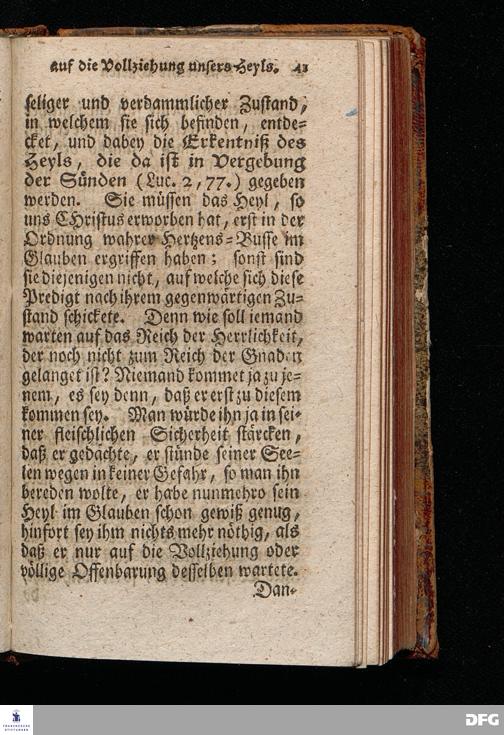 auf die Vollziehung unsers Heyls. 41
seliger und verdammlicher Zustand,
in welchem sie sich befinden, entde-
cket, und dabey die Erkentniß des
Heyls, die da ist in Vergebung
der Sünden (Luc. 2, 77.) gegeben
werden. Sie müssen das Heyl, so
uns CHristus erworben hat, erst in der
Ordnung wahrer Hertzens-Busse im
Glauben ergriffen haben; sonst sind
sie diejenigen nicht, auf welche sich diese
Predigt nach ihrem gegenwärtigen Zu-
stand schickete. Denn wie soll iemand
warten auf das Reich der Herrlichkeit,
der noch nicht zum Reich der Gnaden
gelanget ist? Niemand kommet ja zu je-
nem, es sey denn, daß er erst zu diesem
kommen sey. Man würde ihn ja in sei-
ner fleischlichen Sicherheit stärcken,
daß er gedächte, er stünde seiner See-
len wegen in keiner Gefahr, so man ihn
bereden wolte, er habe nunmehro sein
Heyl im Glauben schon gewiß genug,
hinfort sey ihm nichts mehr nöthig, als
daß er nur auf die Vollziehung oder
völlige Offenbarung desselben wartete.
Dan-
FRANCKESCHE
STIFTUNGEN
DFG